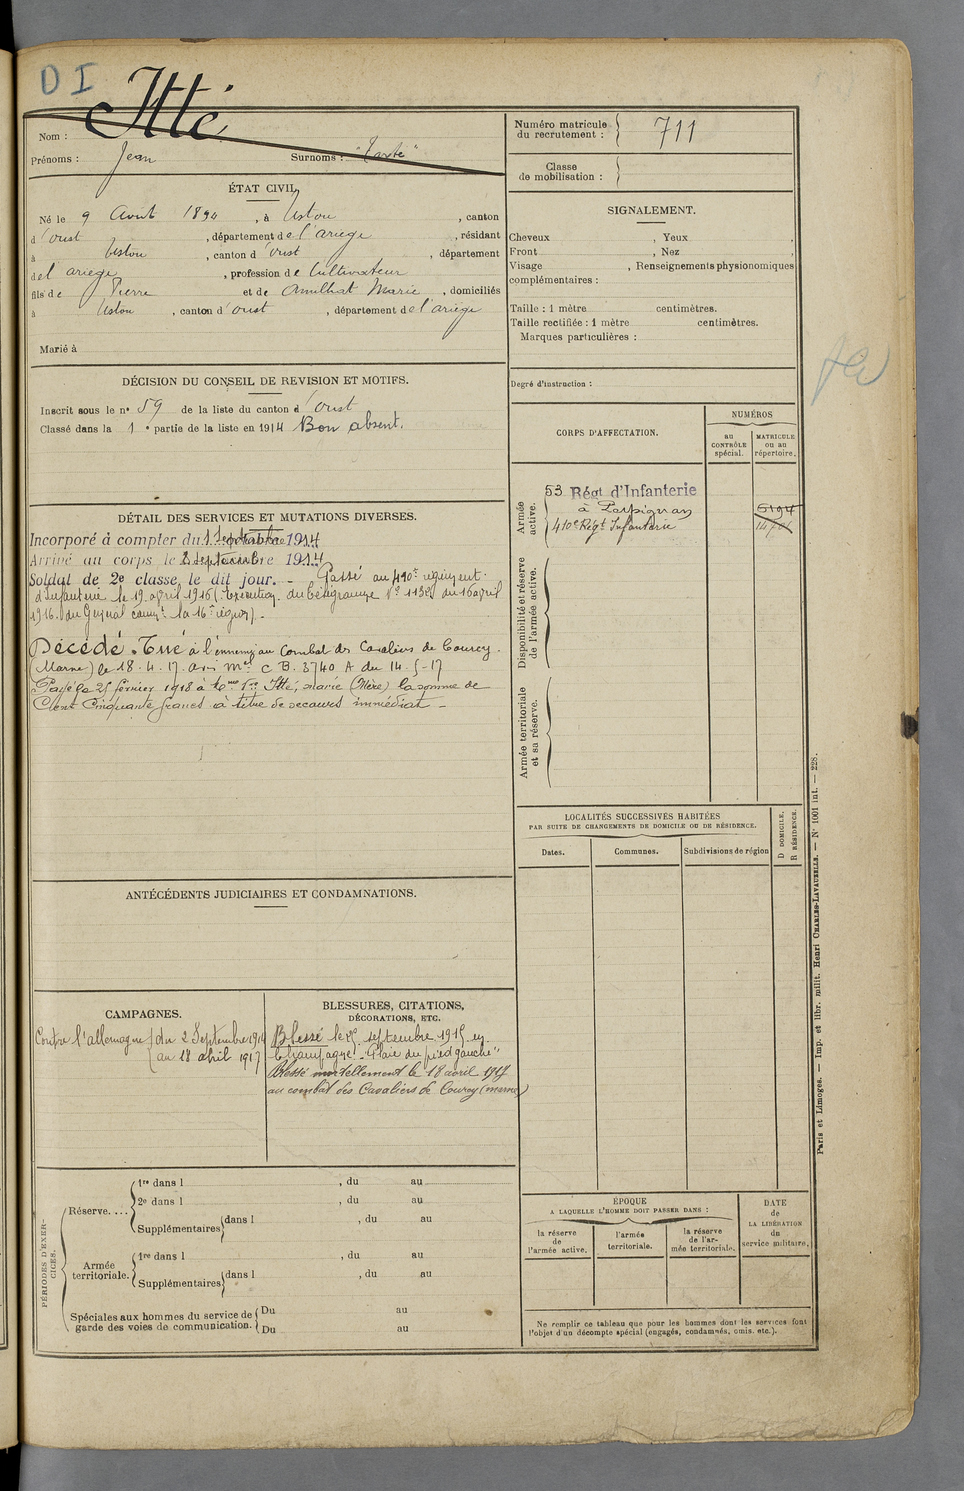 D I
Nom : Itté
Prénoms : Jean Surnoms :
Numéro matricule
du recrutement : 711
Classe
de mobilisation :
ÉTAT CIVIL
Né le 9 Août 1894, à Ustou, canton
d'oust, département de l'ariège, résidant
à Ustou, canton d'oust, département
del ariege, profession de Cultivateur
fils de Pierre et de Amilhat Marie, domiciliés
à Ustou, canton d'oust, département de l'ariège
Marié à
SIGNALEMENT.
Cheveux , Yeux ,
Front , Nez ,
Visage , Renseignements physionomiques
complémentaires :
Taille : 1 mètre centimètres.
Taille rectifiée : 1 mètre centimètres.
Marques particulières :
Degré d'instruction :
DÉCISION DU CONSEIL DE REVISION ET MOTIFS.
Inscrit sous le n° 59 de la liste du canton d'oust
Classé dans la 1e partie de la liste en 1914 Bon absent.
DÉTAIL DES SERVICES ET MUTATIONS DIVERSES.
Incorporé à compter du 1 Septembre 1914
Arrivé au corps le 2 septembre 1914
Soldat de 2e classe le dit jour. - Passé au 410e régiment
d'Infanterie le 19 avril 1916 (Exécution du télégramme N° du 16 avril
1916. du Général la 16e région). -
Décédé. Tué à l'ennemi au Combat des Cavaliers de Courcy.
(Marne) le 18.4.17. avis mel C B. 3740 A du 14-5-17
Payé le 25 février 1918 à Itté, marie (Mère) la somme de
Cent Cinquante francs à titre de secours immédiat -
CORPS D'AFFECTATION.
NUMÉROS
au
CONTRÔLE
spécial.
MATRICULE
ou au
répertoire.
Armée
active.
53 Régt d'Infanterie
à Perpignan
410e Régt Infanterie
6194
Disponibilité et réserve
de l'armée active.
Armée territoriale
et sa réserve.
LOCALITÉS SUCCESSIVES HABITÉES
PAR SUITE DE CHANGEMENTS DE DOMICILE OU DE RÉSIDENCE.
Dates.
Communes.
Subdivisions de région
D DOMICILE.
R RÉSIDENCE.
ANTÉCÉDENTS JUDICIAIRES ET CONDAMNATIONS.
CAMPAGNES.
Contre l'allemagne du 2 Septembre 1914
au 18 abril 1917
BLESSURES, CITATIONS,
DÉCORATIONS, ETC.
Blessé le septembre 1915 en
Champagne. "Plaie du pied gauche"
Blessé mortellement le 18 avril 1917
au combat des Cavaliers de Courcy (marne)
PÉRIODES D'EXERCICES.
Réserve....
1re dans l , du au
2e dans l , du au
Supplémentaires dans l , du au
Armée
territoriale.
1re dans l , du au
Supplémentaires dans l , du au
Spéciales aux hommes du service de
garde des voies de communication.
Du au
Du au
ÉPOQUE
A LAQUELLE L'HOMME DOIT PASSER DANS :
la réserve
de
l'armée active.
l'armée
territoriale.
la réserve
de l'ar-
mée territoriale.
DATE
de
LA LIBÉRATION
du
service militaire.
Ne remplir ce tableau que pour les hommes dont les services font
l'objet d'un décompte spécial (engagés, condamnés, omis, etc.).
Paris et Limoges. — Imp. et libr. milit. Henri CHARLES-LAVAUZELLE. — N° 1001 int. — 228.